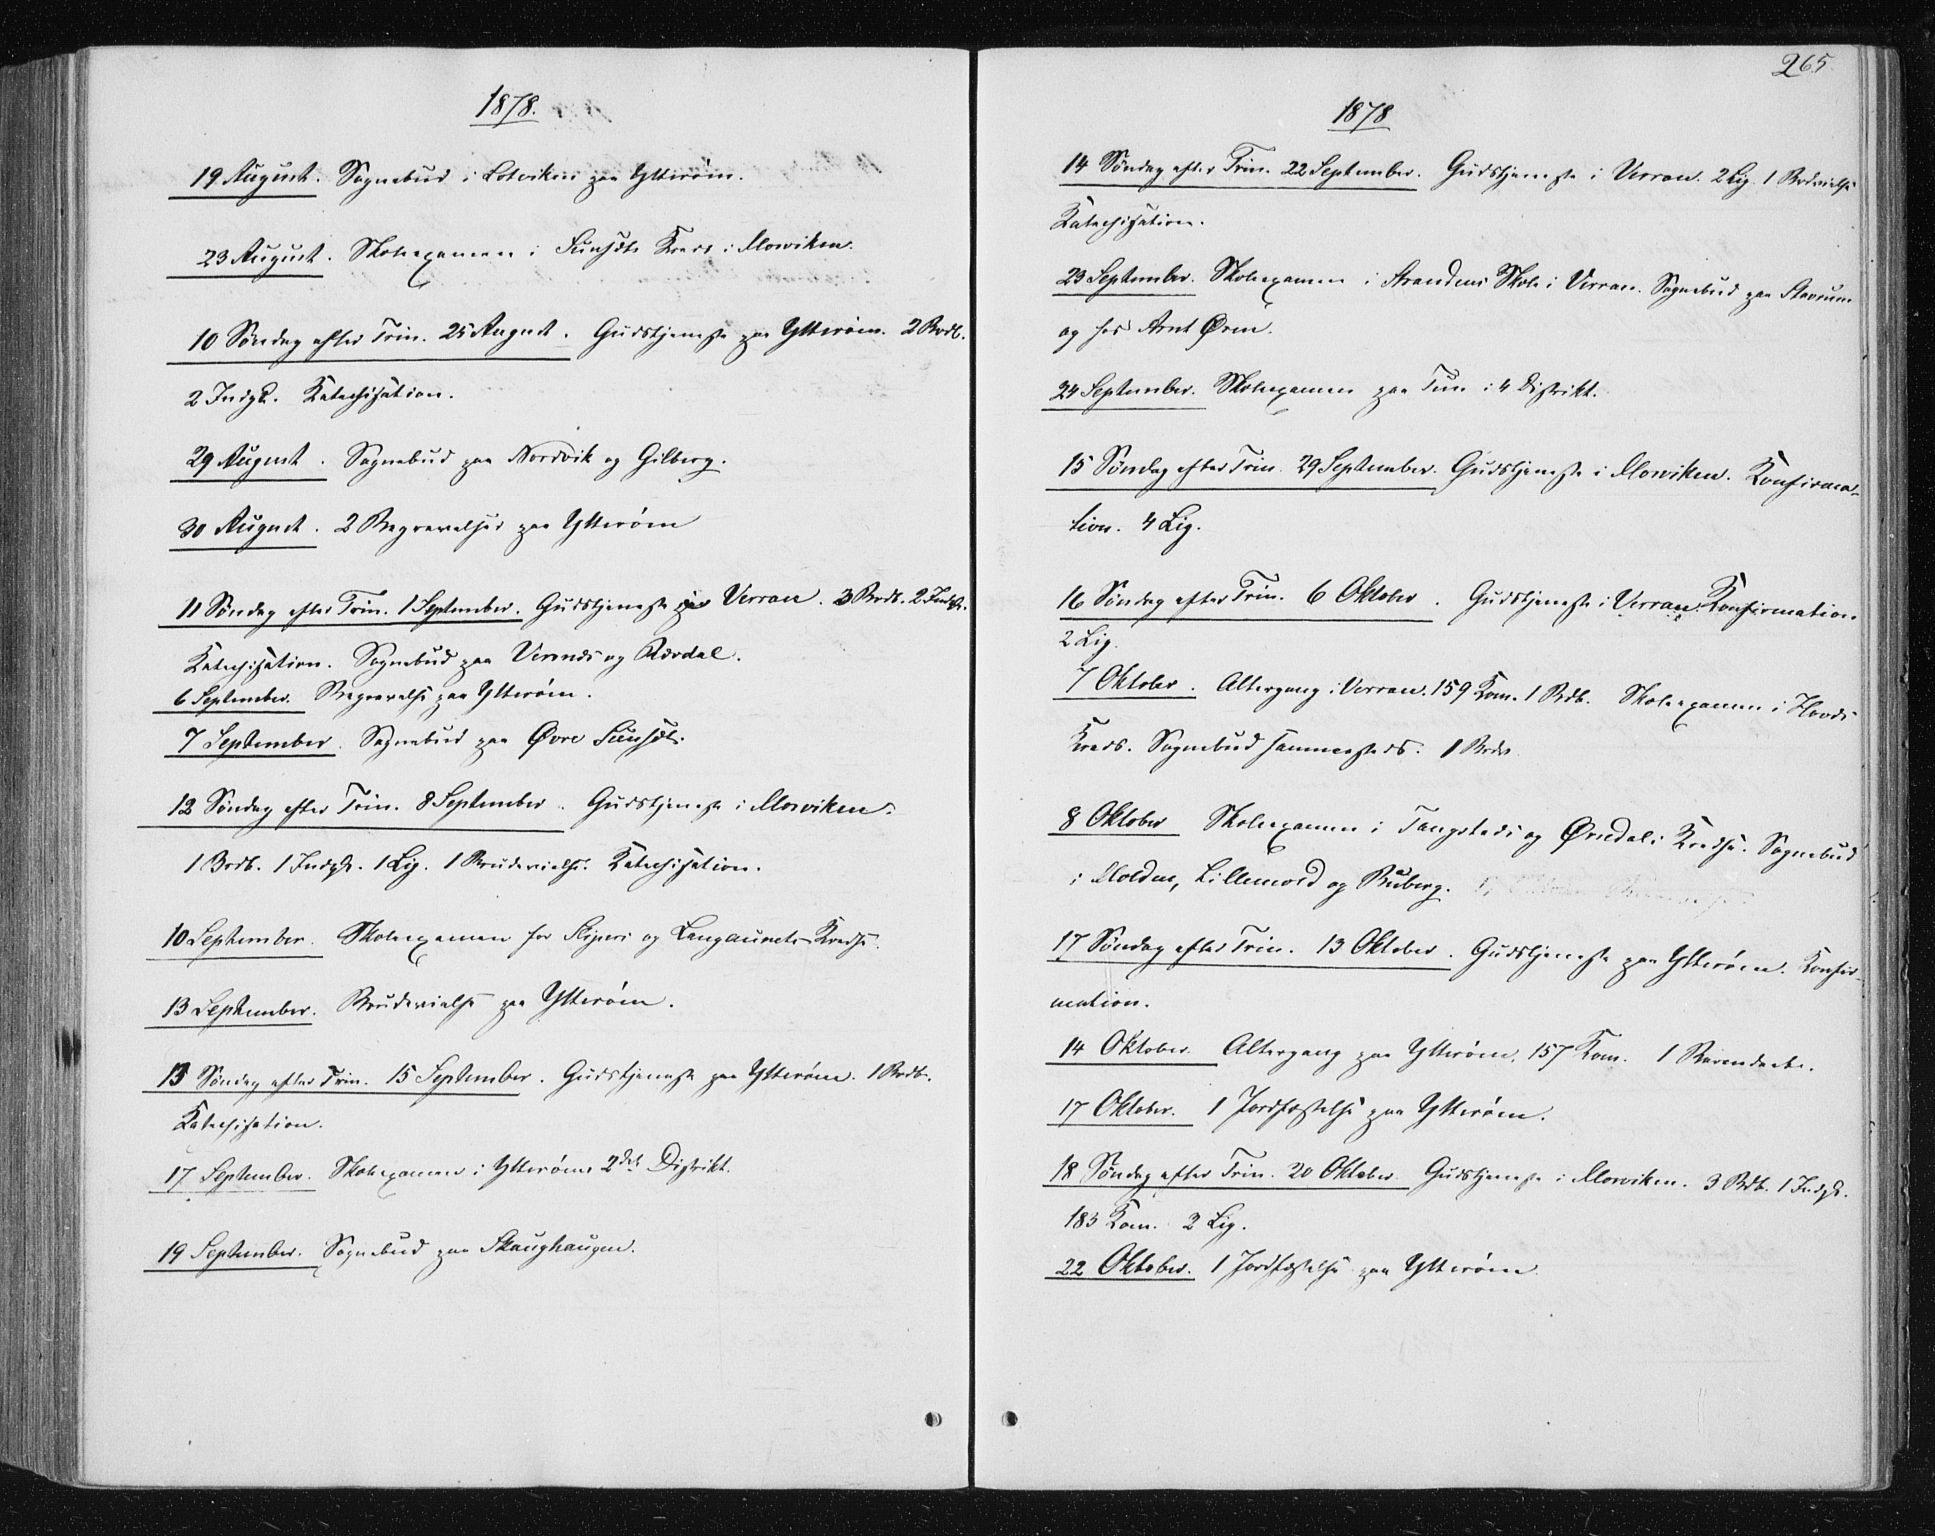 1878.
19 August. Sognebud i Lotviken paa Ytterøen.
23 August. Skoleexamen i Sunsets Kreds i Mosviken.
10 Søndag efter Trin. 25 August. Gudstjeneste paa Ytterøen. 2 Brdb.
2 Indgk. Katechisation.
29 August. Sognebud paa Nordvik og Gilberg.
30 August. 2 Begravelser paa Ytterøen
11 Søndag efter Trin. 1 September. Gudstjeneste Verran. 3 Brdb. 2 Indgk.
Katechisation. Sognebud paa og
6 September. Begravelse paa Ytterøen.
7 September. Sognebud paa Øvre
12 Søndag efter Trin. 8 September. Gudstjeneste i Mosviken.
1 Brdb. 1 Indgk. 1 Lig. 1 Brudevielse. Katechisation.
10 September. Skoleexamen for og Langaunets Kredse.
13 September. Brudevielse paa Ytterøen.
13 Søndag efter Trin. 15 September. Gudstjeneste paa Ytterøen. 1 Brdb.
Katechisation.
17 September. Skoleexamen i Ytterøens 2det Distrikt.
19 September. Sognebud paa Skaughaugen.
265.
1878
14 Søndag efter Trin. 22 September. Gudstjeneste i Verran. 2 Lig. 1 Brdvielse
Katechisation.
23 September. Skoleexamen i Strandens Skole i Verran. Sognebud paa Stavrum
og hos Arnt Øren.
24 September. Skoleexamen paa Tun i 4 Distrikt.
15 Søndag efter Trin. 29 September. Gudstjeneste i Mosviken. Konfirma-
tion. 4 Lig.
16 Søndag efter Trin. 6 Oktober. Gudstjeneste i Verran. Konfirmation
2 Lig.
7 Oktober. Altergang i Verran. 159 Kom. 1 Bdb. Skoleexamen i Hovds
Kreds. Sognebud sammesteds. 1 Brdb
8 Oktober Skoleexamen i Tangstads og Øvredals Kredse. Sognebud
i Holden, Lillemold og Buberg.
17 Søndag efter Trin. 13 Oktober. Gudstjeneste paa Ytterøen. Konfir-
mation.
14 Oktober. Altergang paa Ytterøen. 157 Kom. 1 Barnedaab.
17 Oktober. 1 Jordfæstelse paa Ytterøen.
18 Søndag efter Trin. 20 Oktober. Gudstjeneste i Mosviken. 3 Bdb. 1 Indgk.
183 Kom. 2 Lig.
22 Oktober. 1 Jordfæstelse paa Ytterøen.